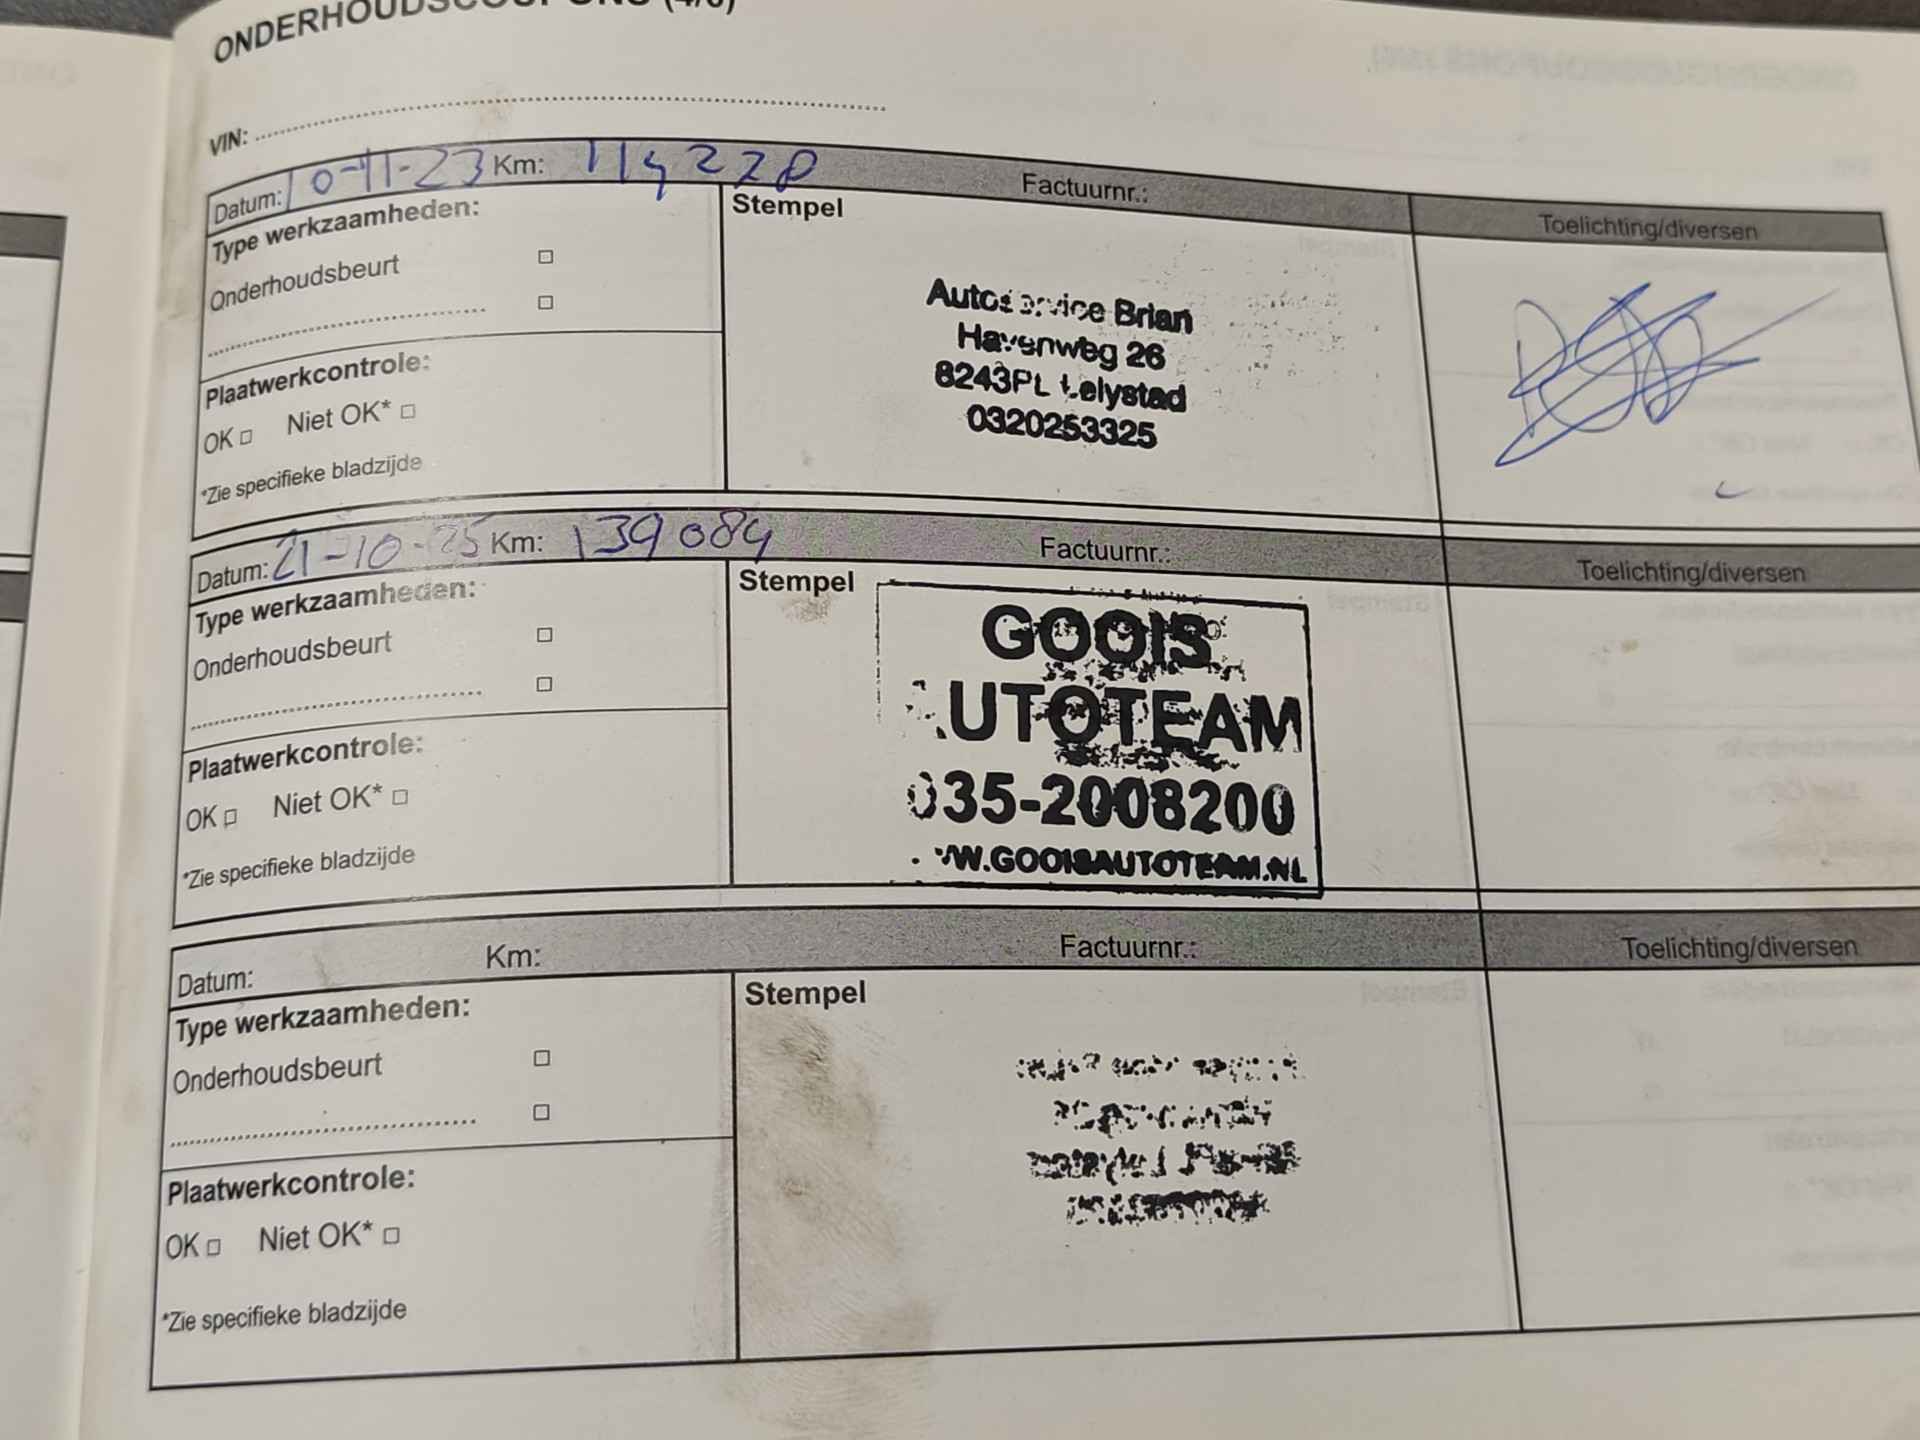 ONDERHOUDSCOUPONS (4/6)
VIN:
Datum: 10-11-23 Km: 114228 Factuurnr.:
Type werkzaamheden:
Stempel
Toelichting/diversen
Onderhoudsbeurt
Autoservice Brian
Havenweg 26
8243PL Lelystad
0320253325
Plaatwerkcontrole:
OK Niet OK*
*Zie specifieke bladzijde
Datum: 21-10-25 Km: 139084 Factuurnr.:
Type werkzaamheden:
Stempel
Toelichting/diversen
Onderhoudsbeurt
GOOIS
AUTOTEAM
035-2008200
WWW.GOOISAUTOTEAM.NL
Plaatwerkcontrole:
OK Niet OK*
*Zie specifieke bladzijde
Datum: Km: Factuurnr.:
Type werkzaamheden:
Stempel
Toelichting/diversen
Onderhoudsbeurt
Plaatwerkcontrole:
OK Niet OK*
*Zie specifieke bladzijde